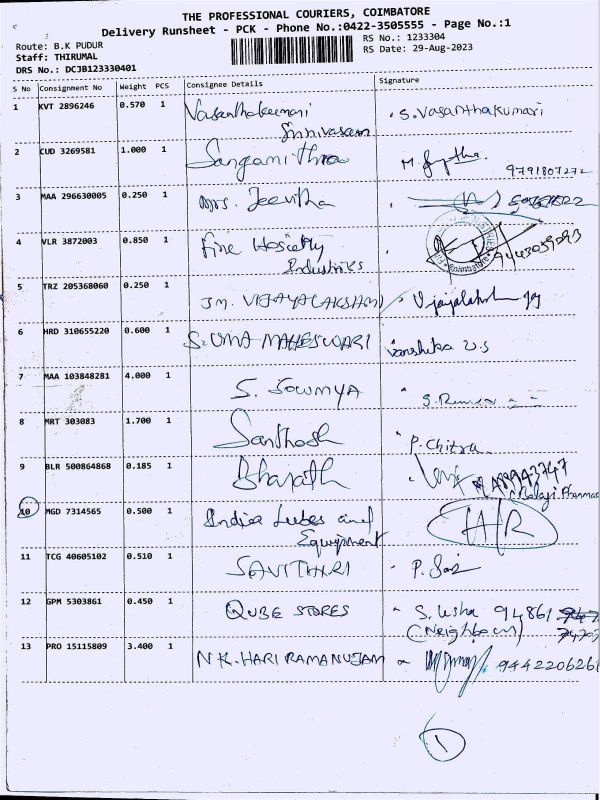 THE PROFESSIONAL COURIERS, COIMBATORE
Delivery Runsheet - PCK - Phone No.:0422-3505555 - Page No.:1
Route: B.K PUDUR
RS No.: 1233304
Staff: THIRUMAL
RS Date: 29-Aug-2023
DRS No.: DCJB123330401
S No Consignment No Weight PCS Consignee Details Signature
1 KVT 2896246 0.570 1 Vasanthakumari S. Vasanthakumari
Srinivasan
2 CUD 3269581 1.000 1 Sangamithra
9791807272
3 MAA 296630005 0.250 1 Mrs. Jeevitha
4 VLR 3872003 0.850 1 Fine Hosiery 9443059093
Industries
5 TRZ 205368060 0.250 1 JM. VIJAYALAKSHMI
6 HRD 310655220 0.600 1 S. UMA MAHESWARI Vanshika U.S
7 MAA 103848281 4.000 1 S. SOWMYA
8 MRT 303083 1.700 1 Santhosh P. Chitra
9 BLR 500864868 0.185 1 Bharath
Balaji Pharmac
10 MGD 7314565 0.500 1 India Lubes and H/R
Equipment
11 TCG 40605102 0.510 1 SAVITHIRI
12 GPM 5303861 0.450 1 QUBE STORES S. Usha 94861
(Neighbour)
13 PRO 15115809 3.400 1 N.K. HARI RAMANUJAM 9442206261
1